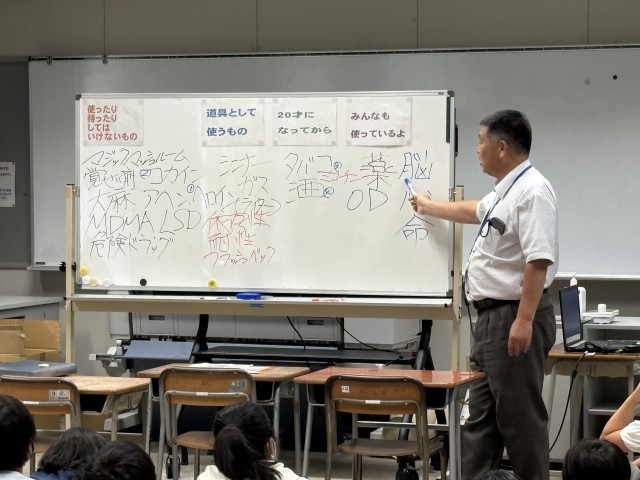 使ったり
持ったり
しては
いけないもの
マジックマッシュルーム
覚せい剤 コカイン
大麻 アヘン ヘロイン
MDMA LSD
危険ドラッグ
道具として
使うもの
シンナー
ガス
(ライター)
依存性
耐性
フラッシュバック
20才に
なってから
タバコ
酒
みんなも
使っているよ
薬
OD
脳
心
命